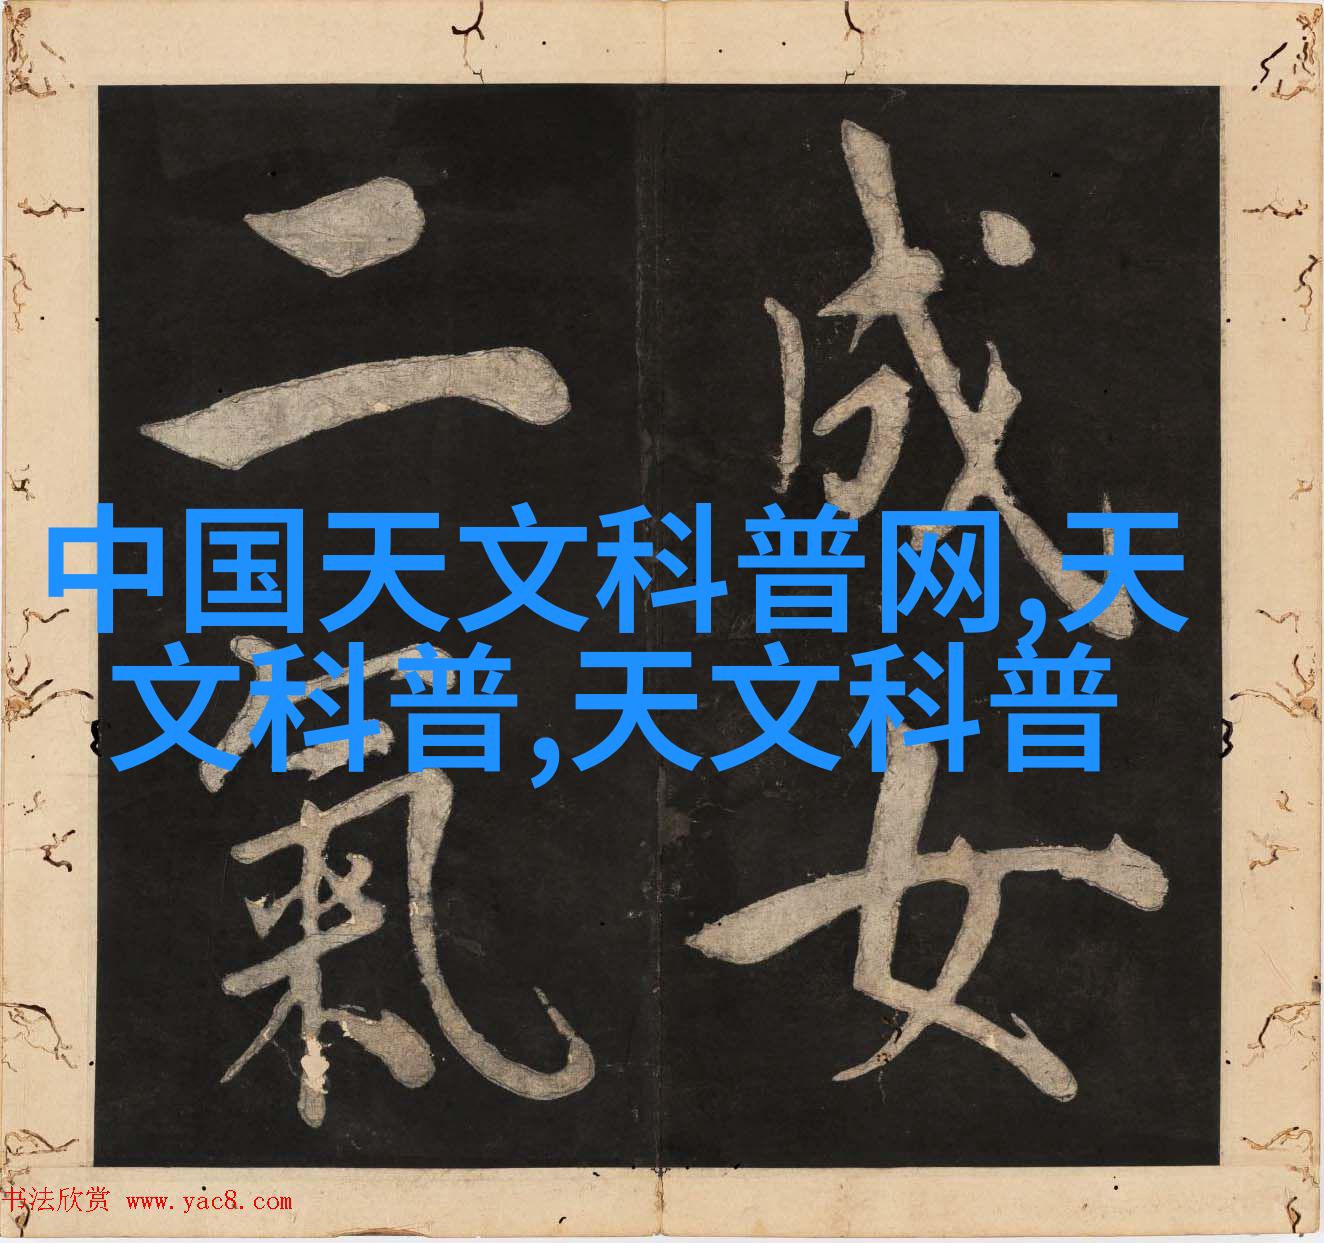 成女
二氣
中国天文科普网,天
文科普,天文科普
书法欣赏 www.yac8.com